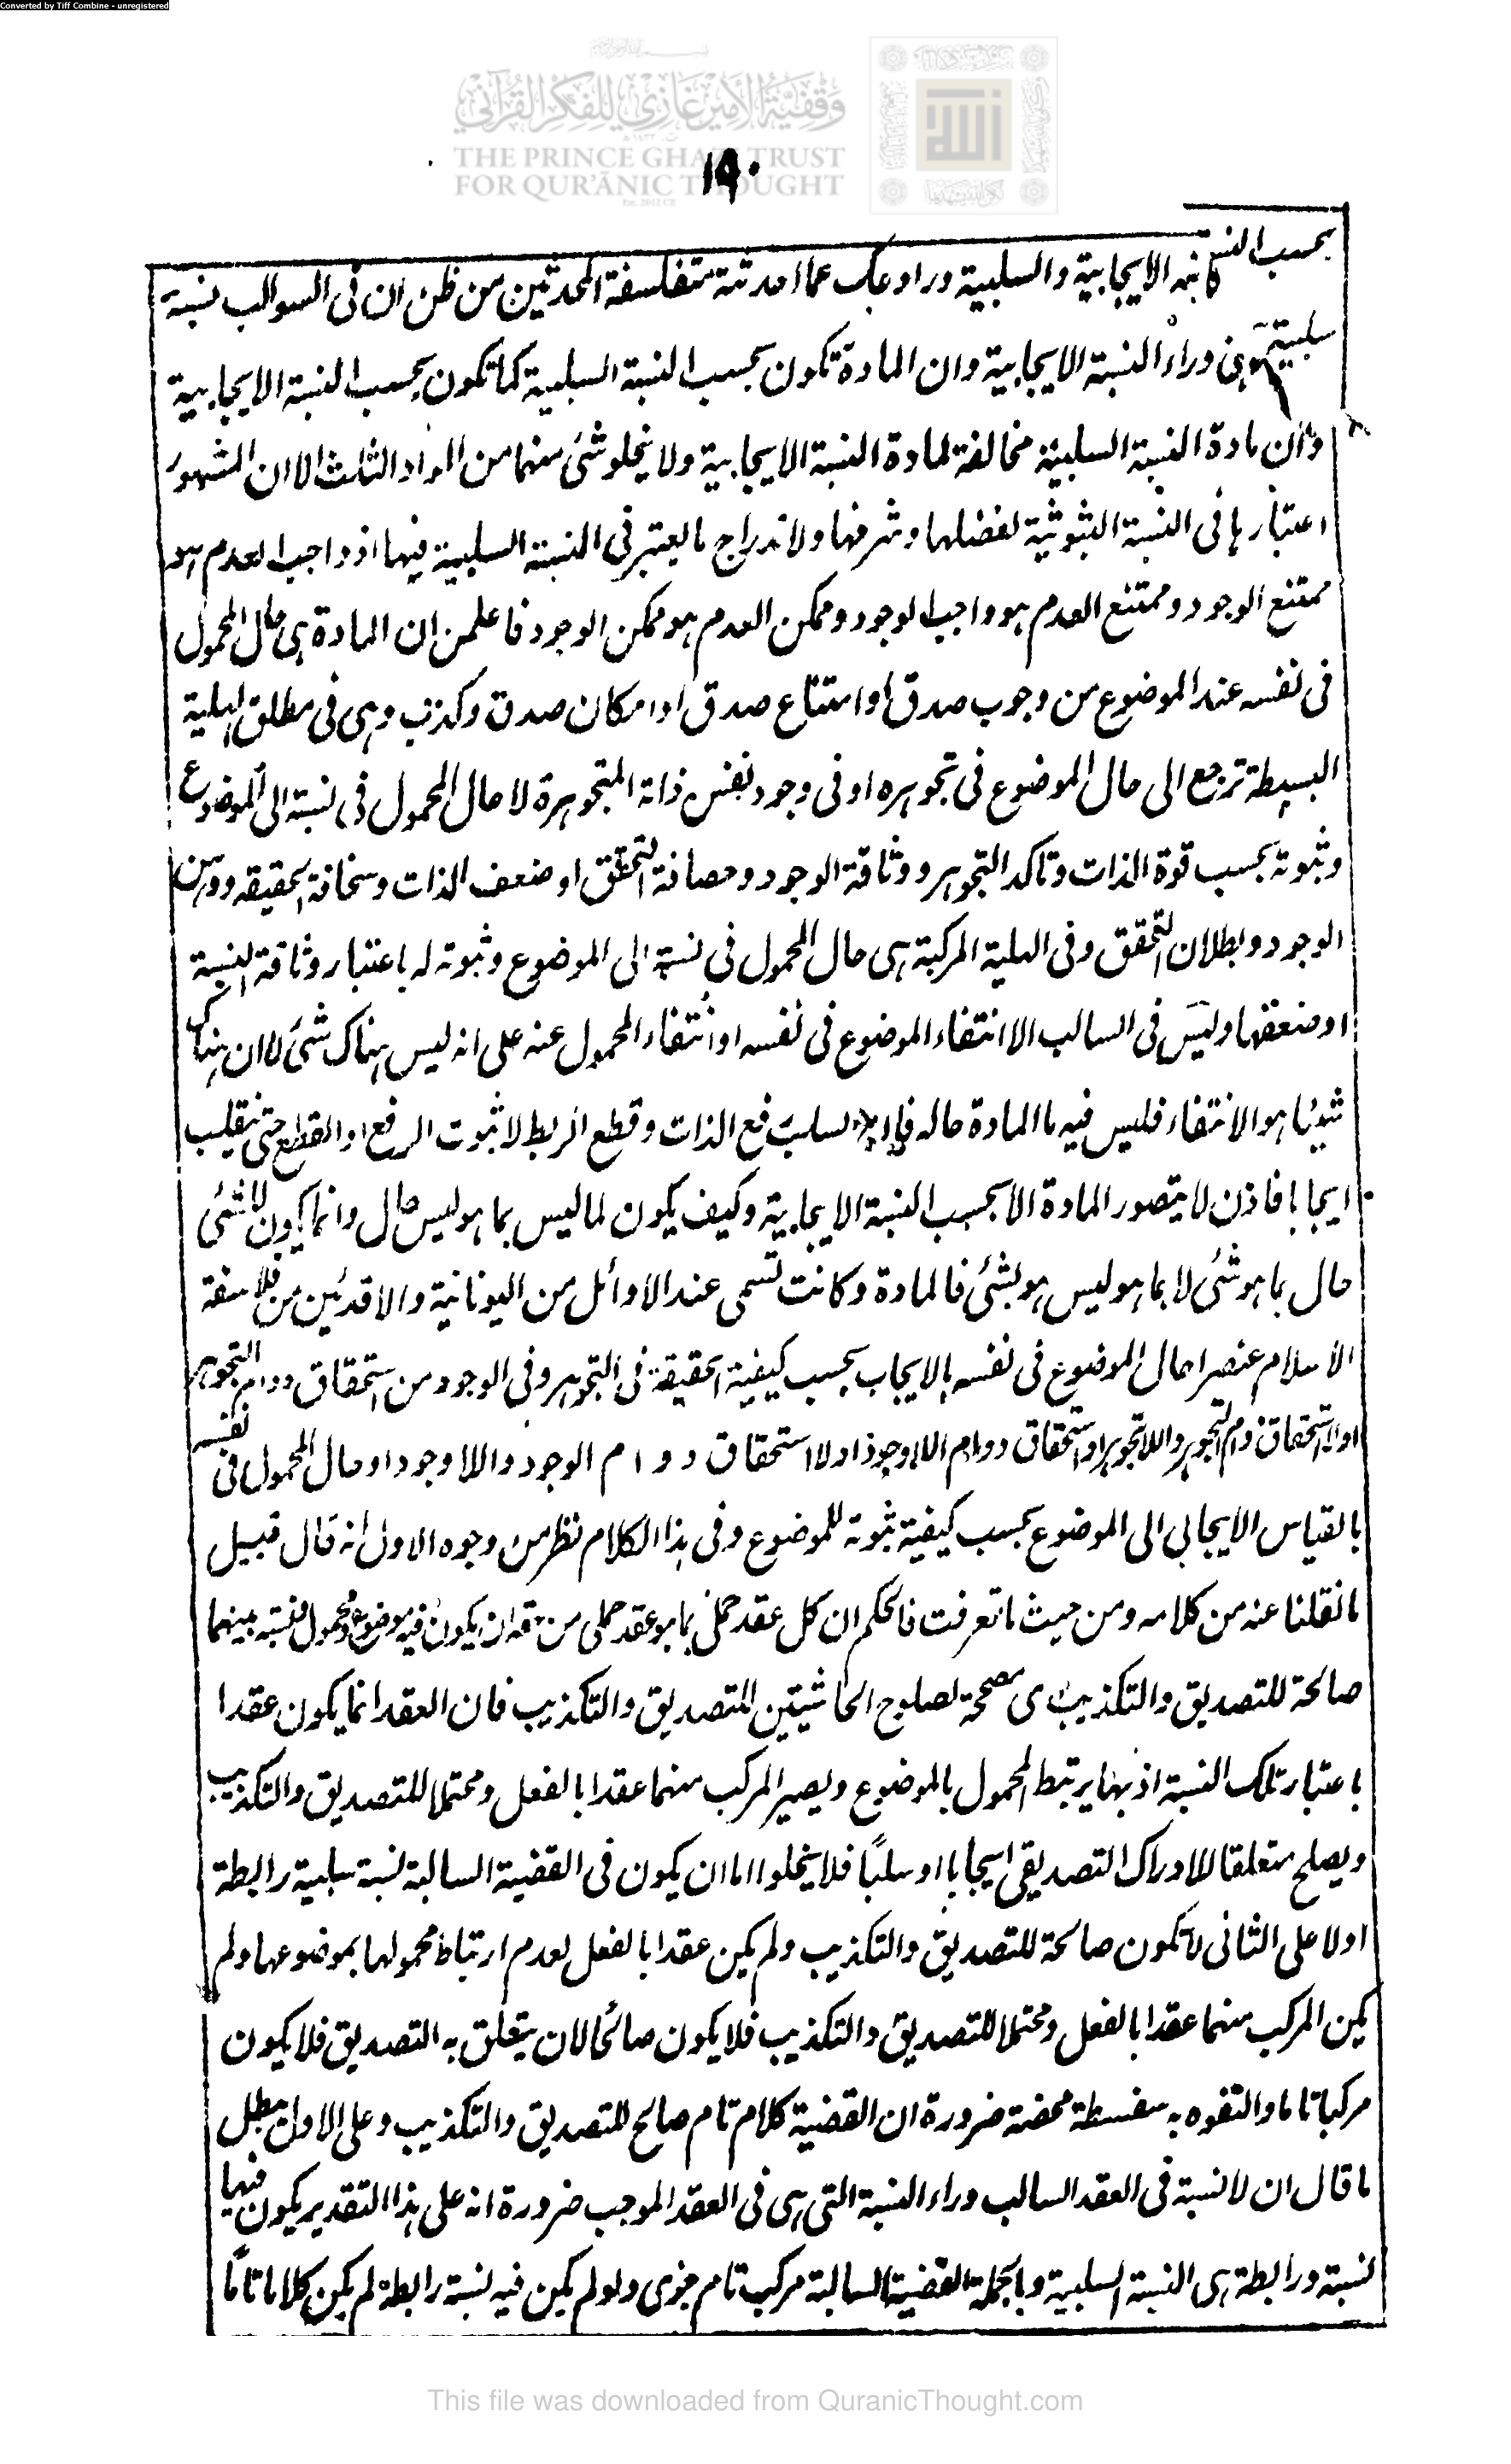 Converted by Tiff Combine - unregistered
وقفية الأمير غازي للفكر القرآني
THE PRINCE GHAZI TRUST
FOR QUR'ĀNIC THOUGHT
١٩٠
بحسب النسبة الايجابية والسلبية وراوعك عما احدثته متفلسفة المحدثين من ظن ان فى السوالب نسبة
سلبية هى وراء النسبة الايجابية وان المادة تكون بحسب النسبة السلبية كما تكون بحسب النسبة الايجابية
وان مادة النسبة السلبية مخالفة لمادة النسبة الايجابية ولا يخلو شئ منهما من المواد الثلث الا ان المشهور
اعتبارها فى النسبة الثبوتية لفضلها وشرفها ولاندراج ما يعتبر فى النسبة السلبية فيها اذ واجب العدم هو
ممتنع الوجود وممتنع العدم هو واجب الوجود وممكن العدم هو ممكن الوجود فاعلمن ان المادة هى حال المحمول
فى نفسه عند الموضوع من وجوب صدق او امتناع صدق او امكان صدق وكذب وهى فى مطلق الهلية
البسيطة ترجع الى حال الموضوع فى تجوهره او فى وجود نفس ذاته المتجوهرة لا حال المحمول فى نسبته الى الموضوع
وثبوته بحسب قوة الذات وتاكد التجوهر ووثاقة الوجود وحصافة التحقق او ضعف الذات وسخافة الحقيقه ووهن
الوجود وبطلان التحقق وفى الهلية المركبة هى حال المحمول فى نسبته الى الموضوع وثبوته له باعتبار وثاقة النسبة
او ضعفها وليس فى السالب الا انتفاء الموضوع فى نفسه او انتفاء المحمول عنه على انه ليس هناك شئ لا ان هناك
شيئا هو الانتفاء فليس فيه ما المادة حاله السلب رفع الذات وقطع الربط لا ثبوت الرفع او القطع حتى ينقلب
ايجابا فاذن لا يتصور المادة الا بحسب النسبة الايجابية وكيف يكون لما ليس بما هو ليس حال وانما يكون للشئ
حال بما هو شئ لا بما هو ليس هو بشئ فالمادة وكانت تسمى عند الاوائل من اليونانية والاقدمين من فلاسفة
الاسلام عنصرا حال الموضوع فى نفسه بالايجاب بحسب كيفية الحقيقة فى التجوهر وفى الوجود من استحقاق دوام التجوهر
او لا استحقاق دوام التجوهر واللاتجوهر او استحقاق دوام اللاوجود او لا استحقاق دوام الوجود واللاوجود او حال المحمول فى نفسه
بالقياس الايجابى الى الموضوع بحسب كيفية ثبوته للموضوع وفى هذا الكلام نظر من وجوه الاول انه قال قبيل
ما نقلنا عنه من كلامه ومن حيث ما تعرفت فالحكم ان كل عقد حملى بما هو عقد حملى من حقه ان يكون فيه موضوع ومحمول ونسبة بينهما
صالحة للتصديق والتكذيب اى مصححة لصلوح الحاشيتين للتصديق والتكذيب فان العقد انما يكون عقدا
باعتبار تلك النسبة اذ بها يرتبط المحمول بالموضوع ويصير المركب منهما عقدا بالفعل ومحتملا للتصديق والتكذيب
ويصلح متعلقا للادراك التصديقى ايجابا او سلبا فلا يخلو اما ان يكون فى القضية السالبة نسبة سلبية رابطة
اولا على الثانى لا تكون صالحة للتصديق والتكذيب ولم يكن عقدا بالفعل لعدم ارتباط محمولها بموضوعها ولم
يكن المركب منهما عقدا بالفعل ومحتملا للتصديق والتكذيب فلا يكون صالحا لان يتعلق به التصديق فلا يكون
مركبا تاما والتفوه به سفسطة محضة ضرورة ان القضية كلام تام صالح للتصديق والتكذيب وعلى الاول يبطل
ما قال ان لا نسبة فى العقد السالب وراء النسبة التى هى فى العقد الموجب ضرورة انه على هذا التقدير يكون فيها
نسبة ورابطة هى النسبة السلبية وبالجملة القضية السالبة مركب تام خبرى ولو لم يكن فيه نسبة رابطة لم يكن كلاما تاما
This file was downloaded from QuranicThought.com